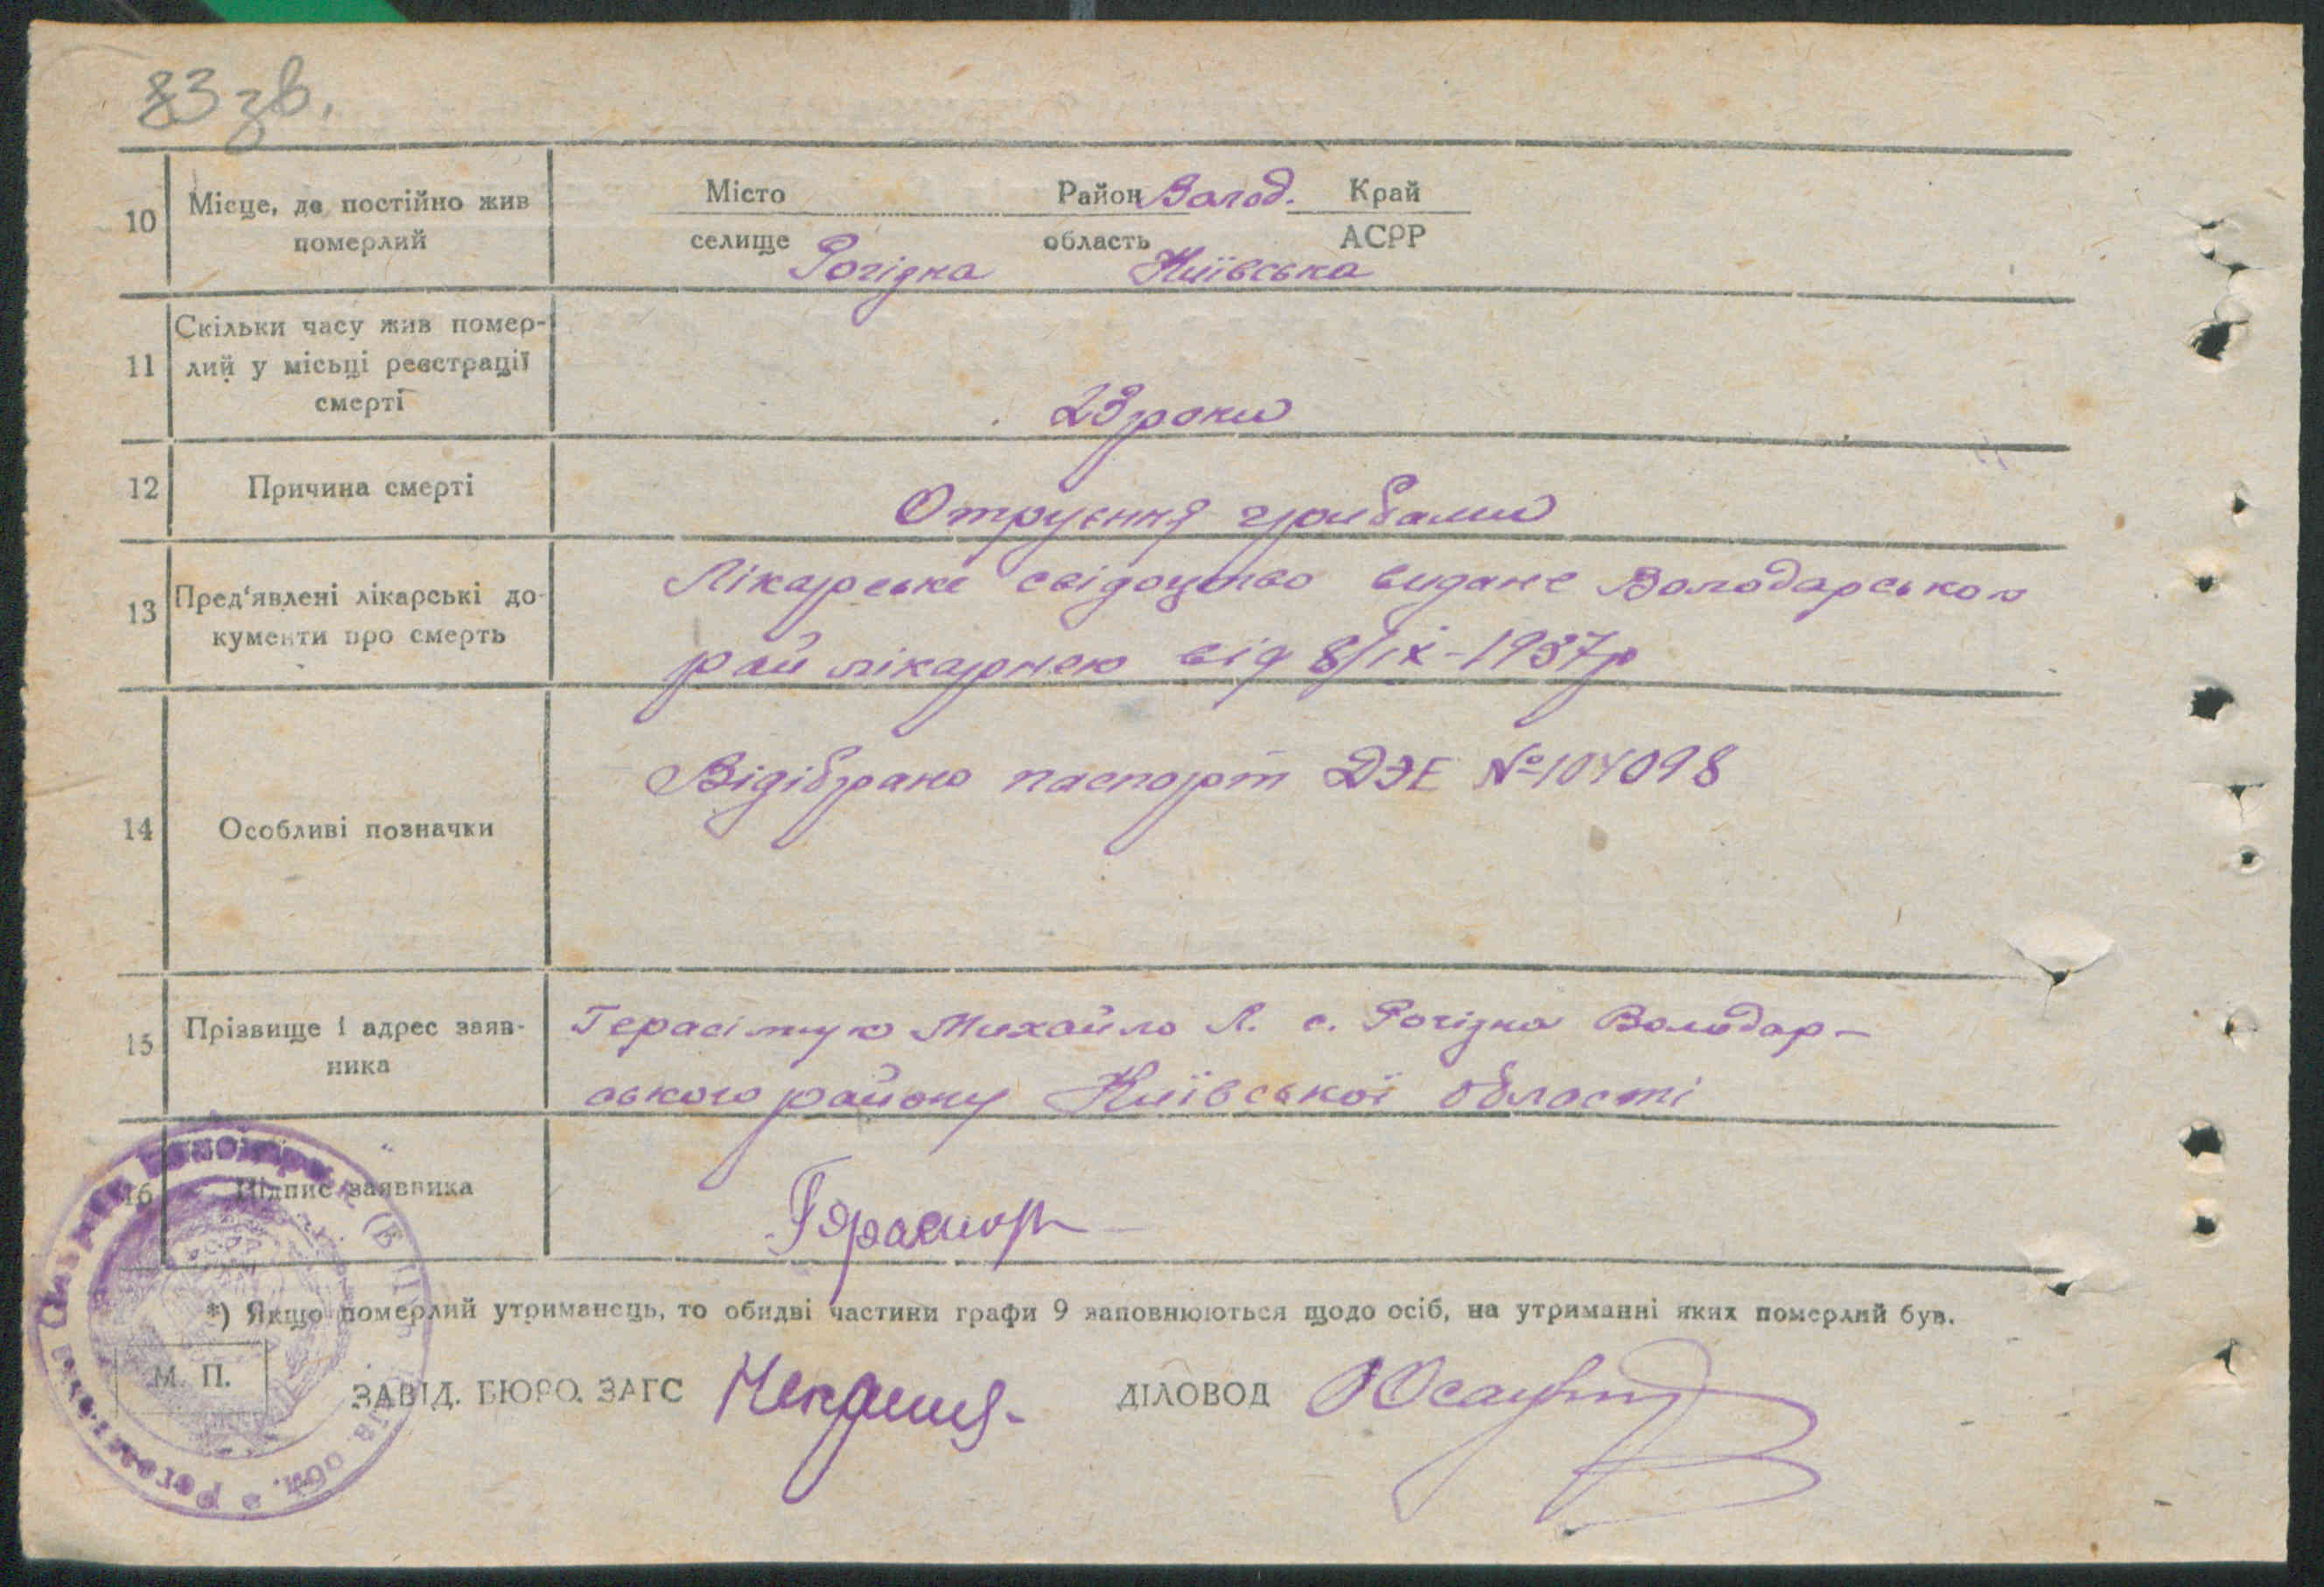 83 зв.
10 Місце, де постійно жив померлий
Місто Район Волод. Край
селище Рогізна область Київська АСРР
11 Скільки часу жив помер-
лий у місьці реєстрації
смерті
23 роки
12 Причина смерті
Отруєння грибами
13 Пред'явлені лікарські до-
кументи про смерть
Лікарське свідоцтво видане Володарською
рай лікарнею від 8/ІХ-1937р
14 Особливі позначки
Відібрано паспорт ДЭЕ №104098
15 Прізвище і адрес заяв-
ника
Герасімчук Михайло Л. с. Рогізна Володар-
ського району Київської області
16 Підпис заявника
*) Якщо померлий утриманець, то обидві частини графи 9 заповнюються щодо осіб, на утриманні яких померлий був.
М. П.
ЗАВІД. БЮРО. ЗАГС
ДІЛОВОД